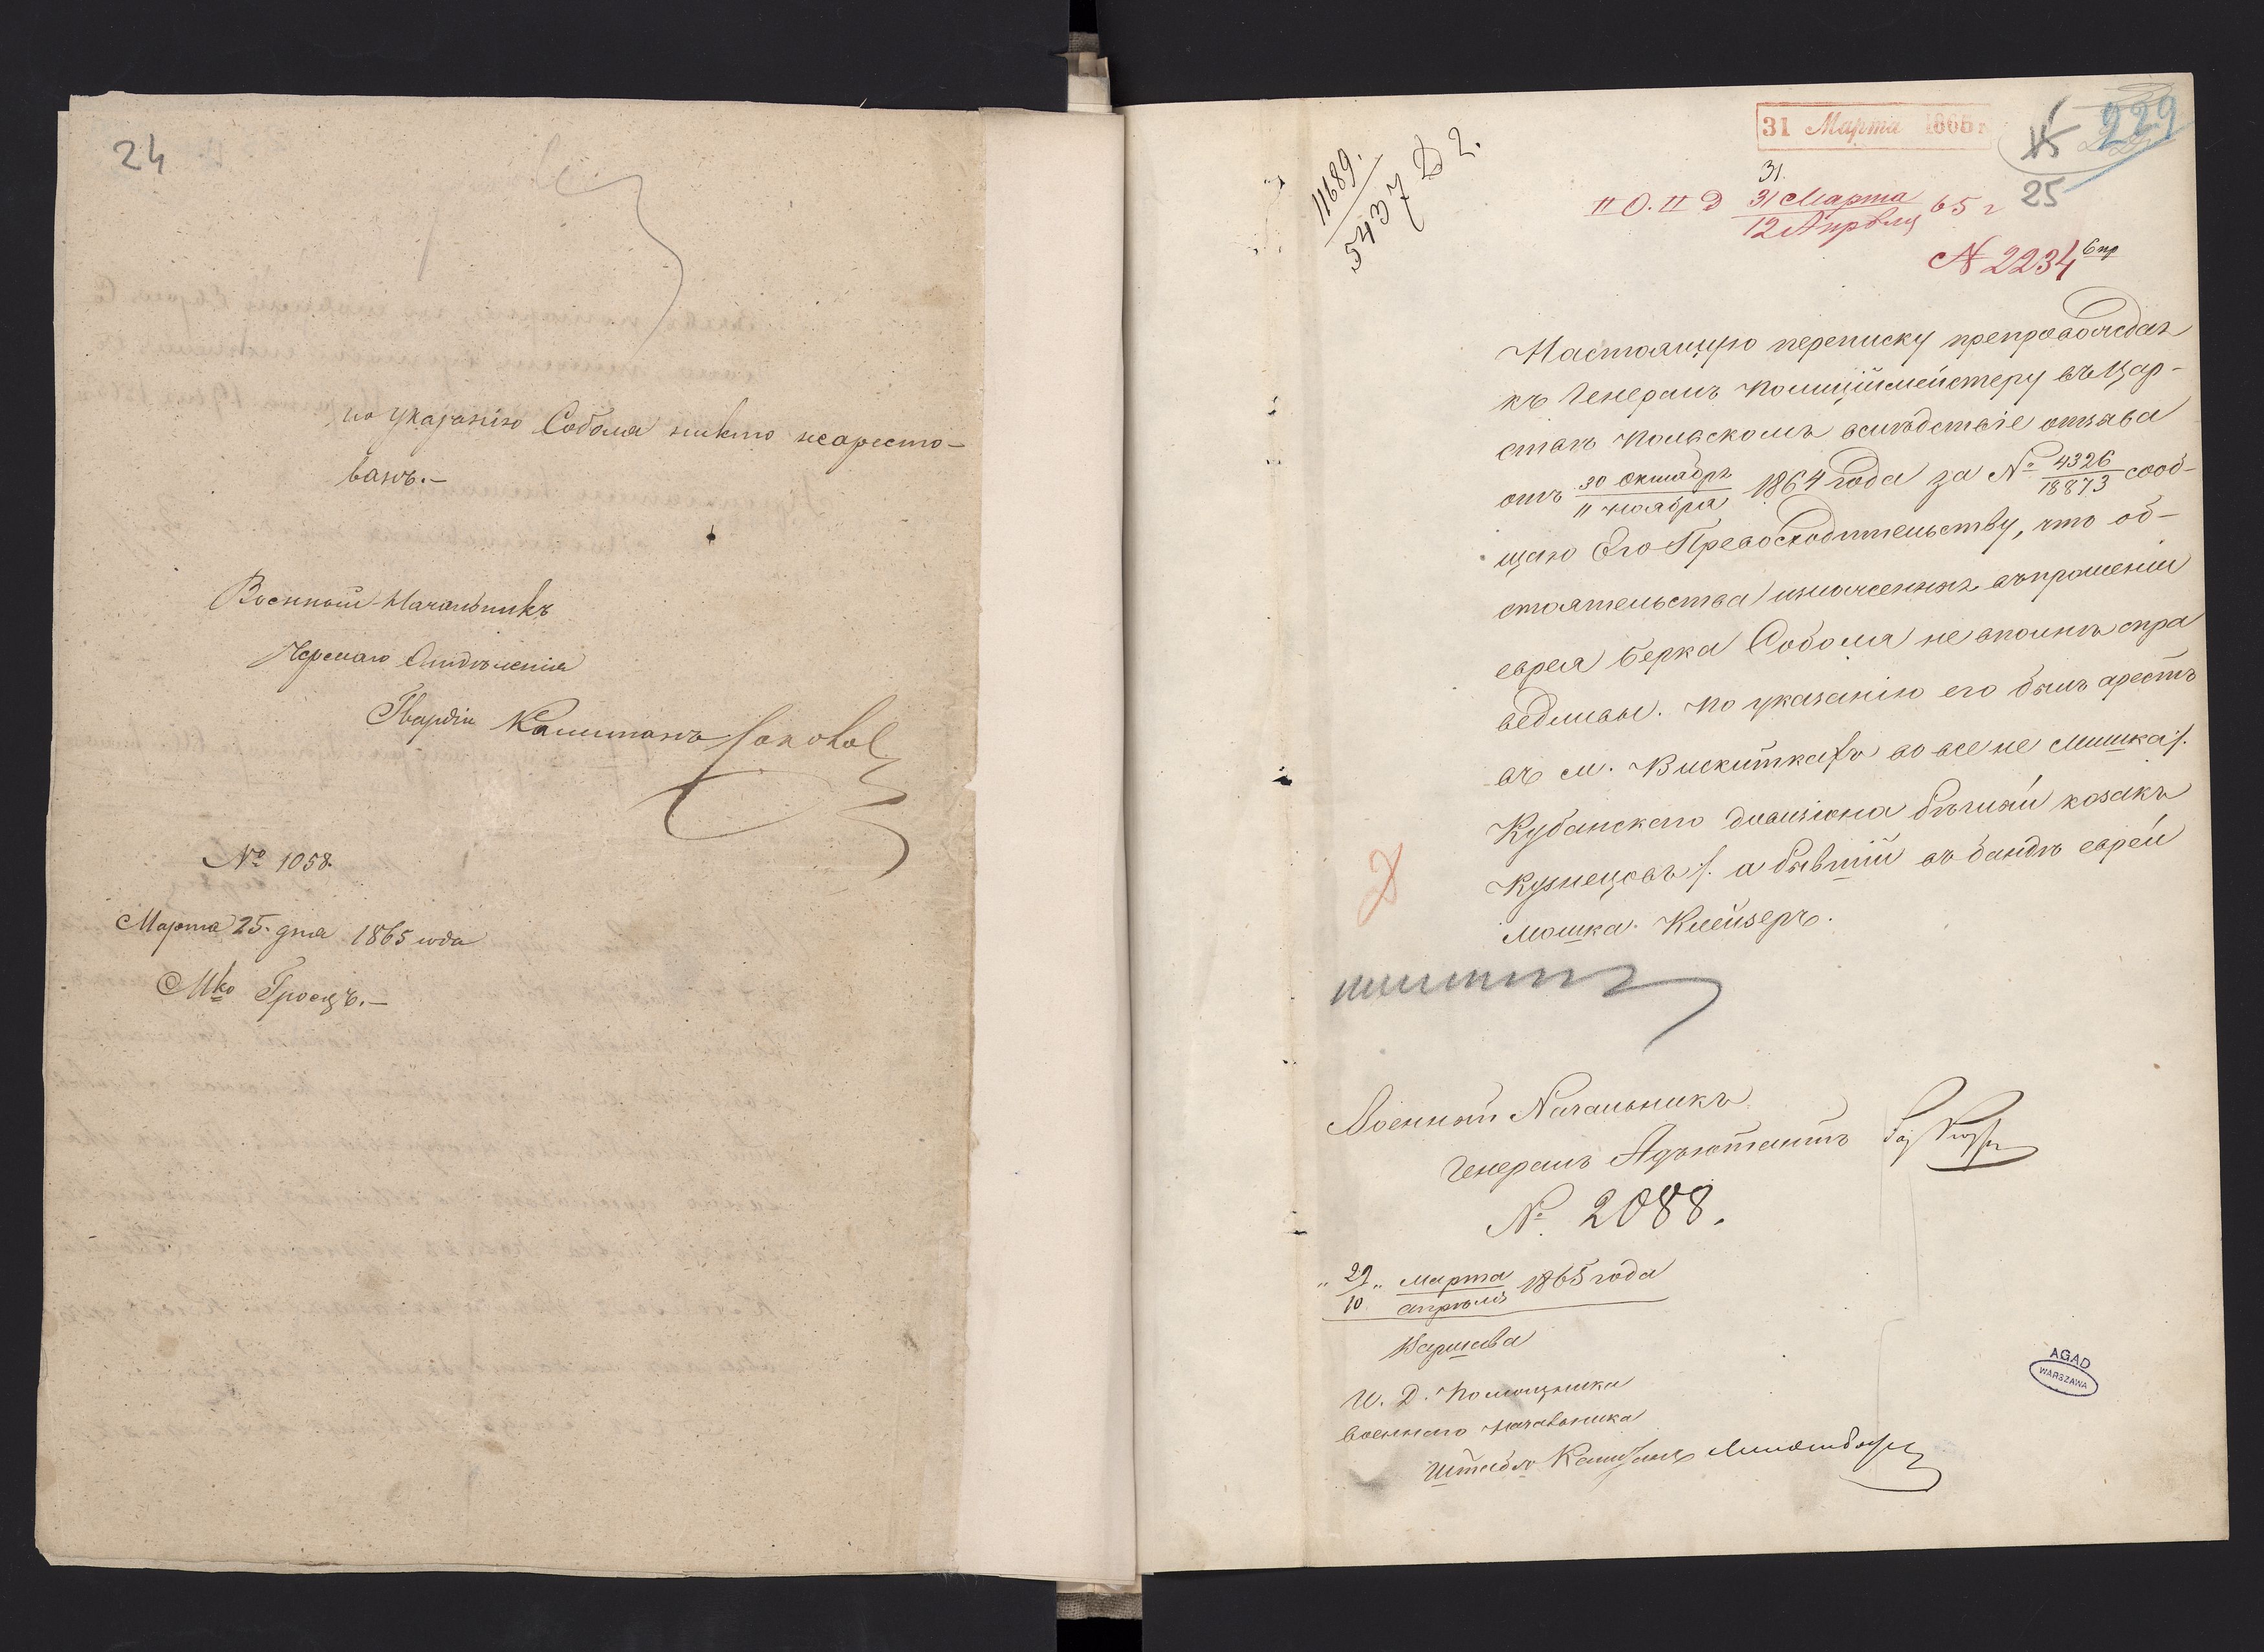 24
по указанію Соболя никто неаресто-
ванъ.-
Военный Начальникъ
Отдѣленія
Гвардіи Капитанъ
№ 1058.
Марта 25 дня 1865 года
Мко Гроецъ.-
11689.
5437 Д 2.
31 Марта 1865 г
229
25
31.
II О. II Д 31 Марта
12 Апрѣля 65 г
№ 2234
Настоящую переписку препровождая
къ Генералъ Полиціймейстеру въ Цар-
ствѣ Польскомъ вслѣдствіе отзыва
отъ 30 Октября
11 Ноября 1864 года за № 4326
18873 сооб-
щаю Его Превосходительству, что об-
стоятельства изложенныя въ прошеніи
еврея Берка Соболя не вполнѣ спра
ведливы. По указанію его былъ арестъ
въ м. Вискиткахъ во все не Мишка /.
Кубанскаго дивизіона бѣглый козакъ
Кузнецовъ /. а бывшій въ бандѣ еврей
Мошка Клейзеръ.
Военный Начальникъ
Генералъ Адъютантъ
№ 2088.
„ 29 „ марта
10 апрѣля 1865 года
Варшава
И. Д. Помощника
Военнаго Начальника
Штабсъ Капитанъ
AGAD
WARSZAWA